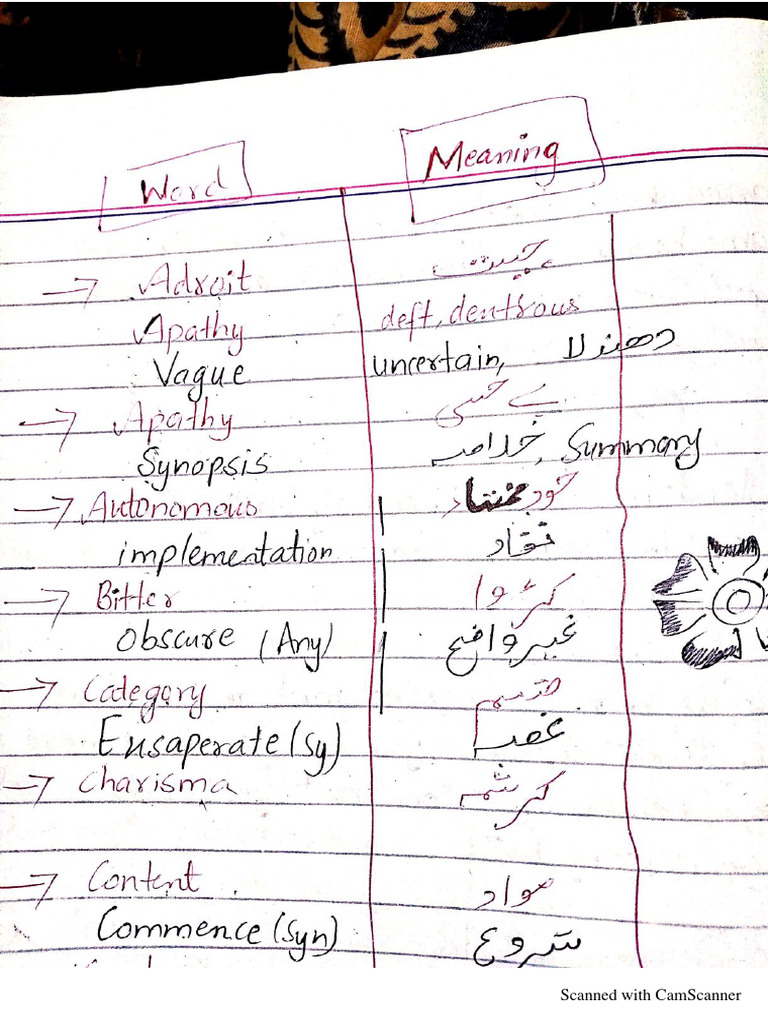 Word Meaning
→ Adroit
Apathy deft, dentrous
Vague uncertain, دھندلا
→ Apathy بے حسی
Synopsis خلاصہ, Summary
→ Autonomous خود مختار
implementation نفاذ
→ Bitter کڑوا
Obscure (Any) غیر واضح
→ Category قسم
Ensaperate (Sy) غصہ
→ Charisma کرشمہ
→ Content مواد
Commence (Syn) شروع
Scanned with CamScanner